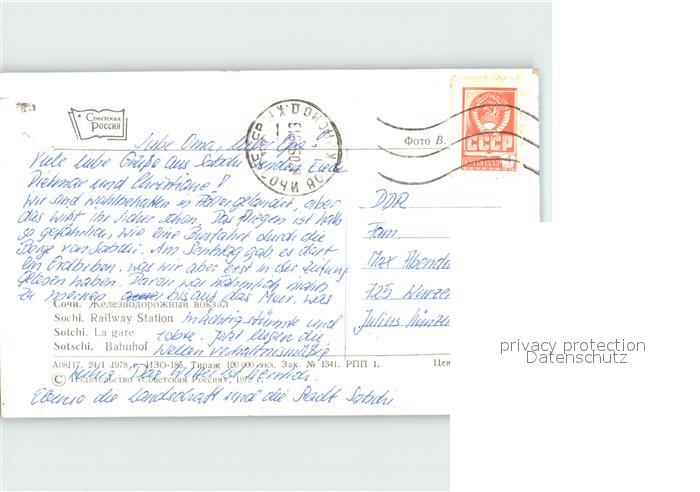 Советская
Россия
Liebe Oma, lieber Opa!
Viele liebe Grüße aus Sotschi senden Euch
Dietmar und Christiane!
Wir sind wohlbehalten in gelandet, aber
das wißt ihr sicher schon. Das Fliegen ist halb
so gefährlich, wie eine Busfahrt durch die
Berge von Sotschi. Am Sonntag gab es dort
ein Erdbeben, was wir aber erst in der Zeitung
gelesen haben. Davon war nähmlich nichts
zu merken bis auf das Meer, was
mächtig stürmte und
tobte. Jetzt liegen die
Wellen verhältnismäßig
ruhig. Das Wetter ist herrlich.
Ebenso die Landschaft und die Stadt Sotschi.
Сочи. Железнодорожный вокзал
Sochi. Railway Station
Sotchi. La gare
Sotschi. Bahnhof
А08117. 24/I 1978 г. ИЗО-185. Тираж 100 000 экз. Зак. № 1341. РПП 1.
Цен
© Издательство «Советская Россия», 1978 г.
Фото В.
СССР
DDR
Fam.
Max
725 Wurzen
Julius
privacy protection
Datenschutz